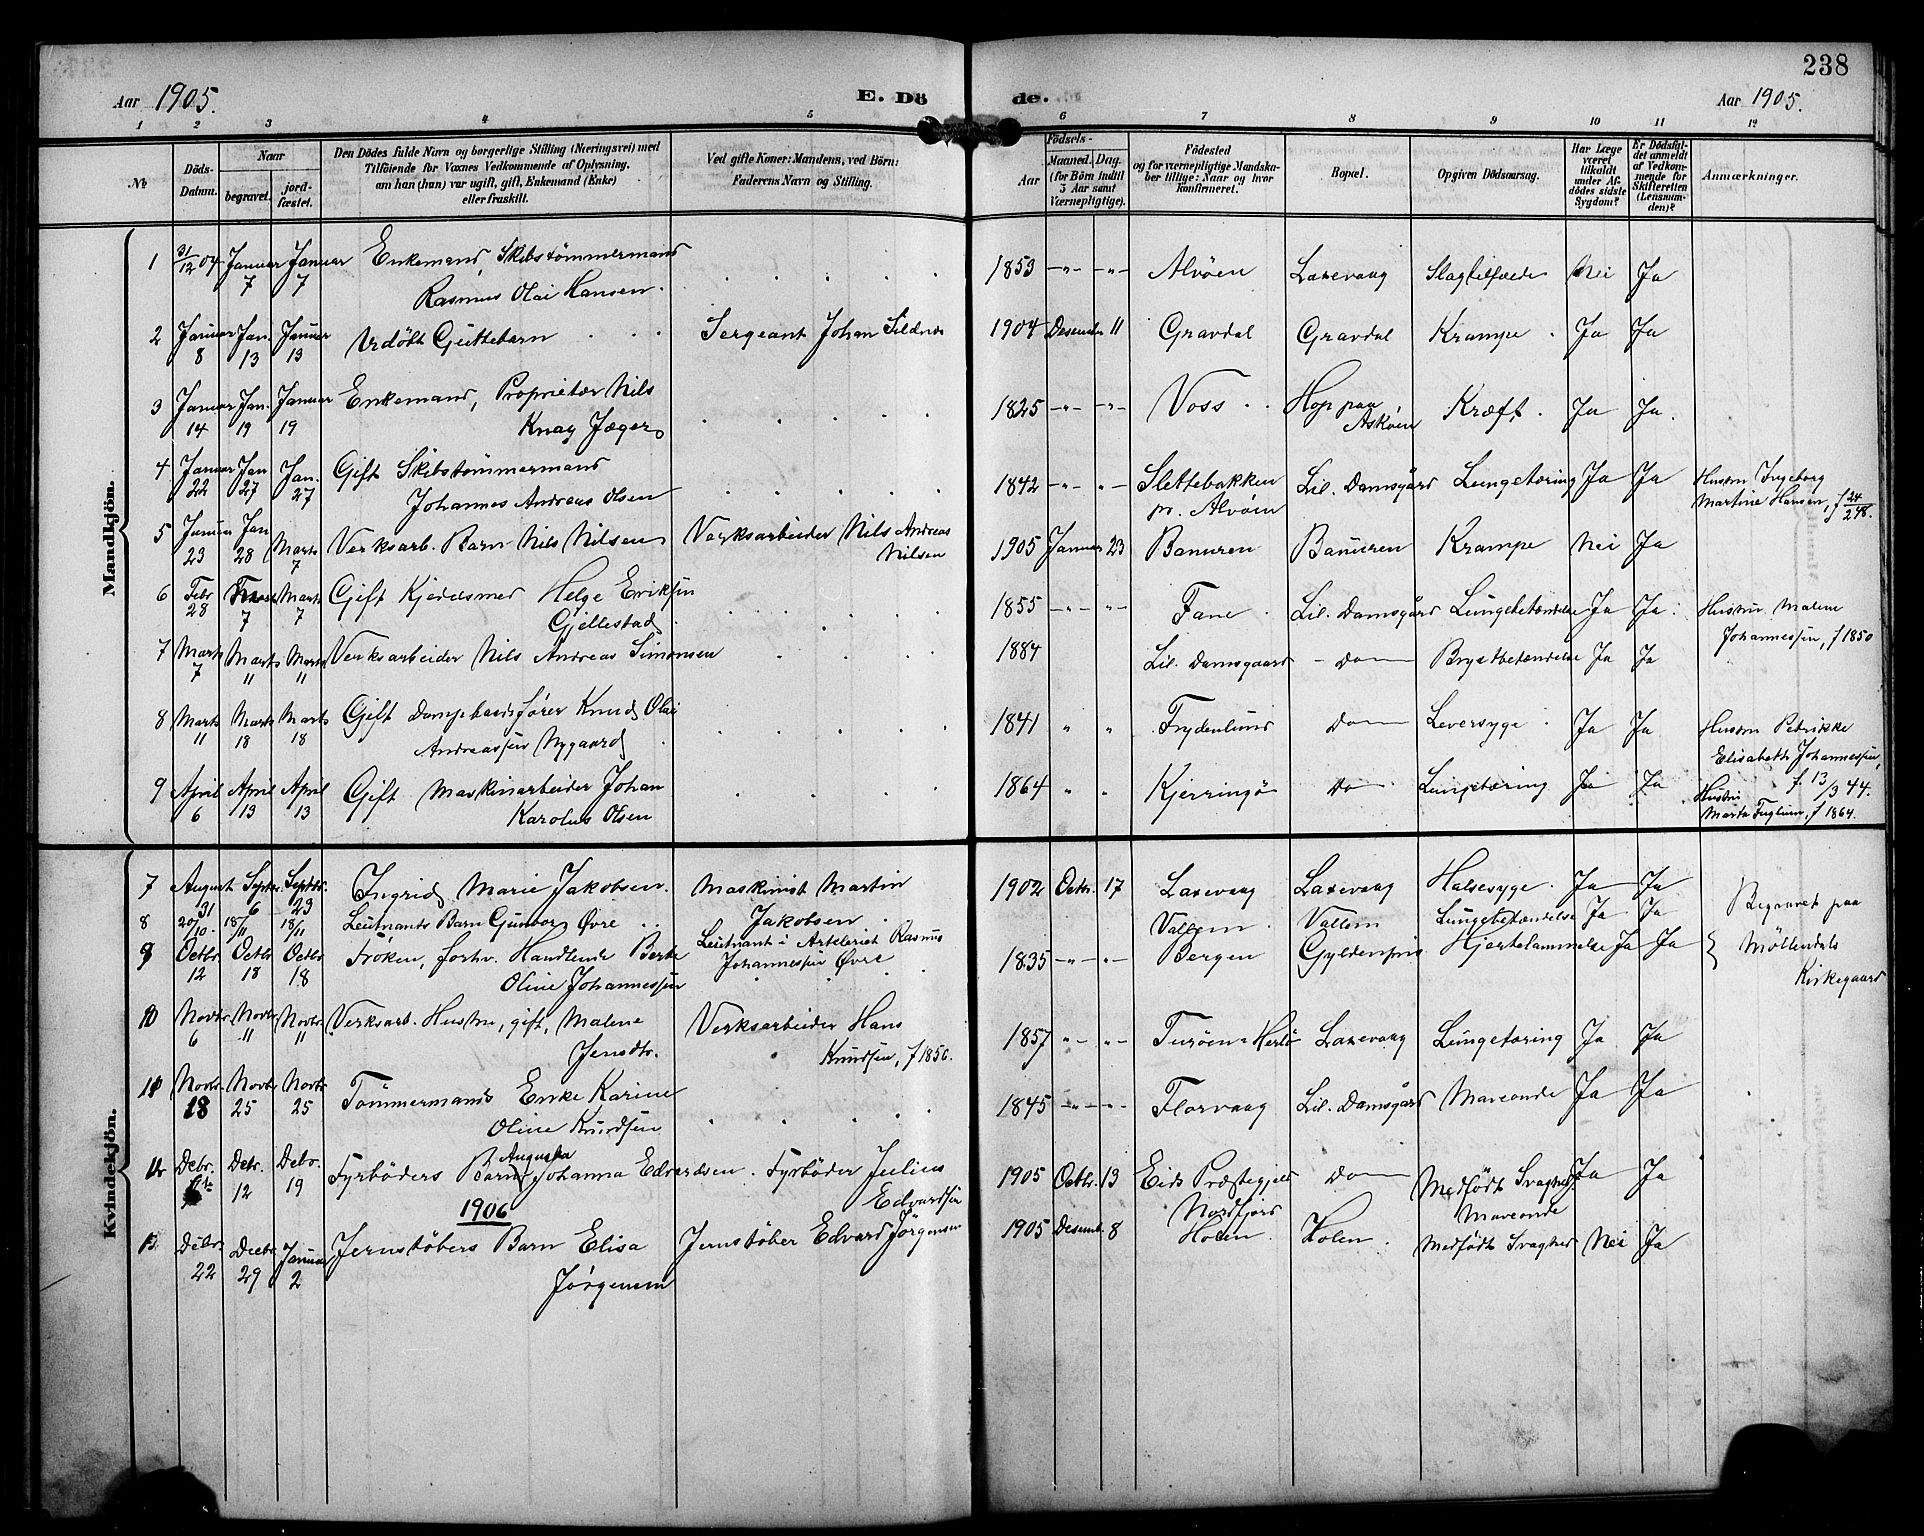 238
Aar 1905. E. Dö de. Aar 1905.
1 2 3 4 5 6 7 8 9 10 11 12
№ Döds-Datum. Naar begravet. jordfæstet. Den Dödes fulde Navn og borgerlige Stilling (Næringsvei) med Tilföiende for Voxnes Vedkommende af Oplysning, om han (hun) var ugift, gift, Enkemand (Enke) eller fraskilt. Ved gifte Koner: Mandens, ved Börn: Faderens Navn og Stilling. Aar Födsels- Maaned. Dag. (for Börn indtil 3 Aar samt Værnepligtige). Födested og for værnepligtige Mandskaber tillige: Naar og hvor konfirmeret. Bopæl. Opgiven Dödsaarsag. Har Læge været tilkaldt under Afdödes sidste Sygdom? Er Dödsfaldet anmeldt af Vedkommende for Skifteretten (Lensmanden)? Anmærkninger.
Mandkjön.
1 31/12 04 Januar 7 Januar 7 Enkemand, Skibstømmermand 1853 -"- -"- Alvöen Laxevaag Slagtilfælde Nei Ja
Rasmus Olai Hansen.
2 Januar 8 Jan. 13 Januar 13 Udöbt Guttebarn Sergeant Johan Sildnes 1904 Desember 11 Gravdal Gravdal Krampe Ja Ja
3 Januar 14 Jan. 19 Januar 19 Enkemand, Proprietær Nils 1825 -"- -"- Voss Hop paa Askøen Kræft. Ja Ja.
Knag Jæger
4 Januar 22 Jan 27 Jan. 27 Gift Skibstømmermand 1842 -"- -"- Slettebakken pr. Alvøen Lil. Damsgård Lungetæring Ja Ja Hustru Ingeborg
Johannes Andreas Olsen Martine Hansen, f 24/2 48.
5 Januar 23 Jan 28 Marts 7 Verksarb. Barn Nils Nilsen Verksarbeider Nils Andreas 1905 Januar 23 Banuren Banuren Krampe Nei Ja
Nilsen
6 Febr 28 7 Marts 7 Gift Kjedelsmed Helge Eriksen 1855 -"- -"- Fane Lil. Damsgård Lungebetændelse Ja Ja. Hustru Malene
Gjellestad Johannessen, f 1850
7 Marts 7 Marts 11 Marts 11 Verksarbeider Nils Andreas Simonsen 1884 Lil. Damsgaard - Do - Brystbetændelse Ja Ja
8 Marts 11 Marts 18 Marts 18 Gift Dampbaadsfører Knud Olai 1841 " " Frydenlund Do - Leversyge Ja Ja Hustru Petrikke
Andreassen Nygaard Elisabeth Johannessen,
f. 13/3 44.
9 April 6 April 13 April 13 Gift Maskinarbeider Johan 1864 " " Kjerringö Do - Lungetæring Ja Ja Hustru
Karolus Olsen Marta Fuglum, f 1864.
Kvindekjön.
7 August 31 Septbr. 6 Septbr. 23 Ingrid Marie Jakobsen. Maskinist Martin 1902 Octbr. 17 Laxevaag Laxevaag Halsesyge. Ja Ja
Jakobsen
8 20/10. 18/11 18/11 Leutnants Barn Gunbor Øvre Leutnant i Artileriet Rasmus Vallem. Vallem Lungebetændelse Ja Ja Begravet paa
Johannessen Øvre
9 Octbr. 12 Octbr 18 Octbr 18 Fröken, forhv. Handlende Berte 1835 -"- -"- Bergen Gyldenpris Hjertelammelse Ja Ja Möllendals
Oline Johannessen Kirkegaard
10 Novbr. 6 Novbr. 11 Novbr. 11 Verksarb. Hustru, gift, Malene Verksarbeider Hans 1857 "- "- Turöen - Herlø Laxevaag Lungetæring Ja Ja
Jensdtr. Knudsen, f 1856.
11 Novbr. 18 Novbr 25 Novbr 25 Tömmermands Enke Karine 1845 -"- -"- Florvaag Lil. Damsgård Maveonde Ja Ja
Oline Knudsen
12 Debr. Debr. 12 Debr. 19 Fyrböders Barn Augusta Johanna Edvardsen. Fyrböder Julius 1905 Octbr. 13 Eids Præstegjeld Do - Medfödt Svaghed Ja Ja
Edvardsen Nordfjord Maveonde
1906
13 Debr. 22 Decbr 29 Januar 2 Jernstøbers Barn Elisa Jernstøber Edvard Jörgensen 1905 Desemb. 8 Holen. Holen. Medfödt Svaghed Nei Ja
Jørgensen